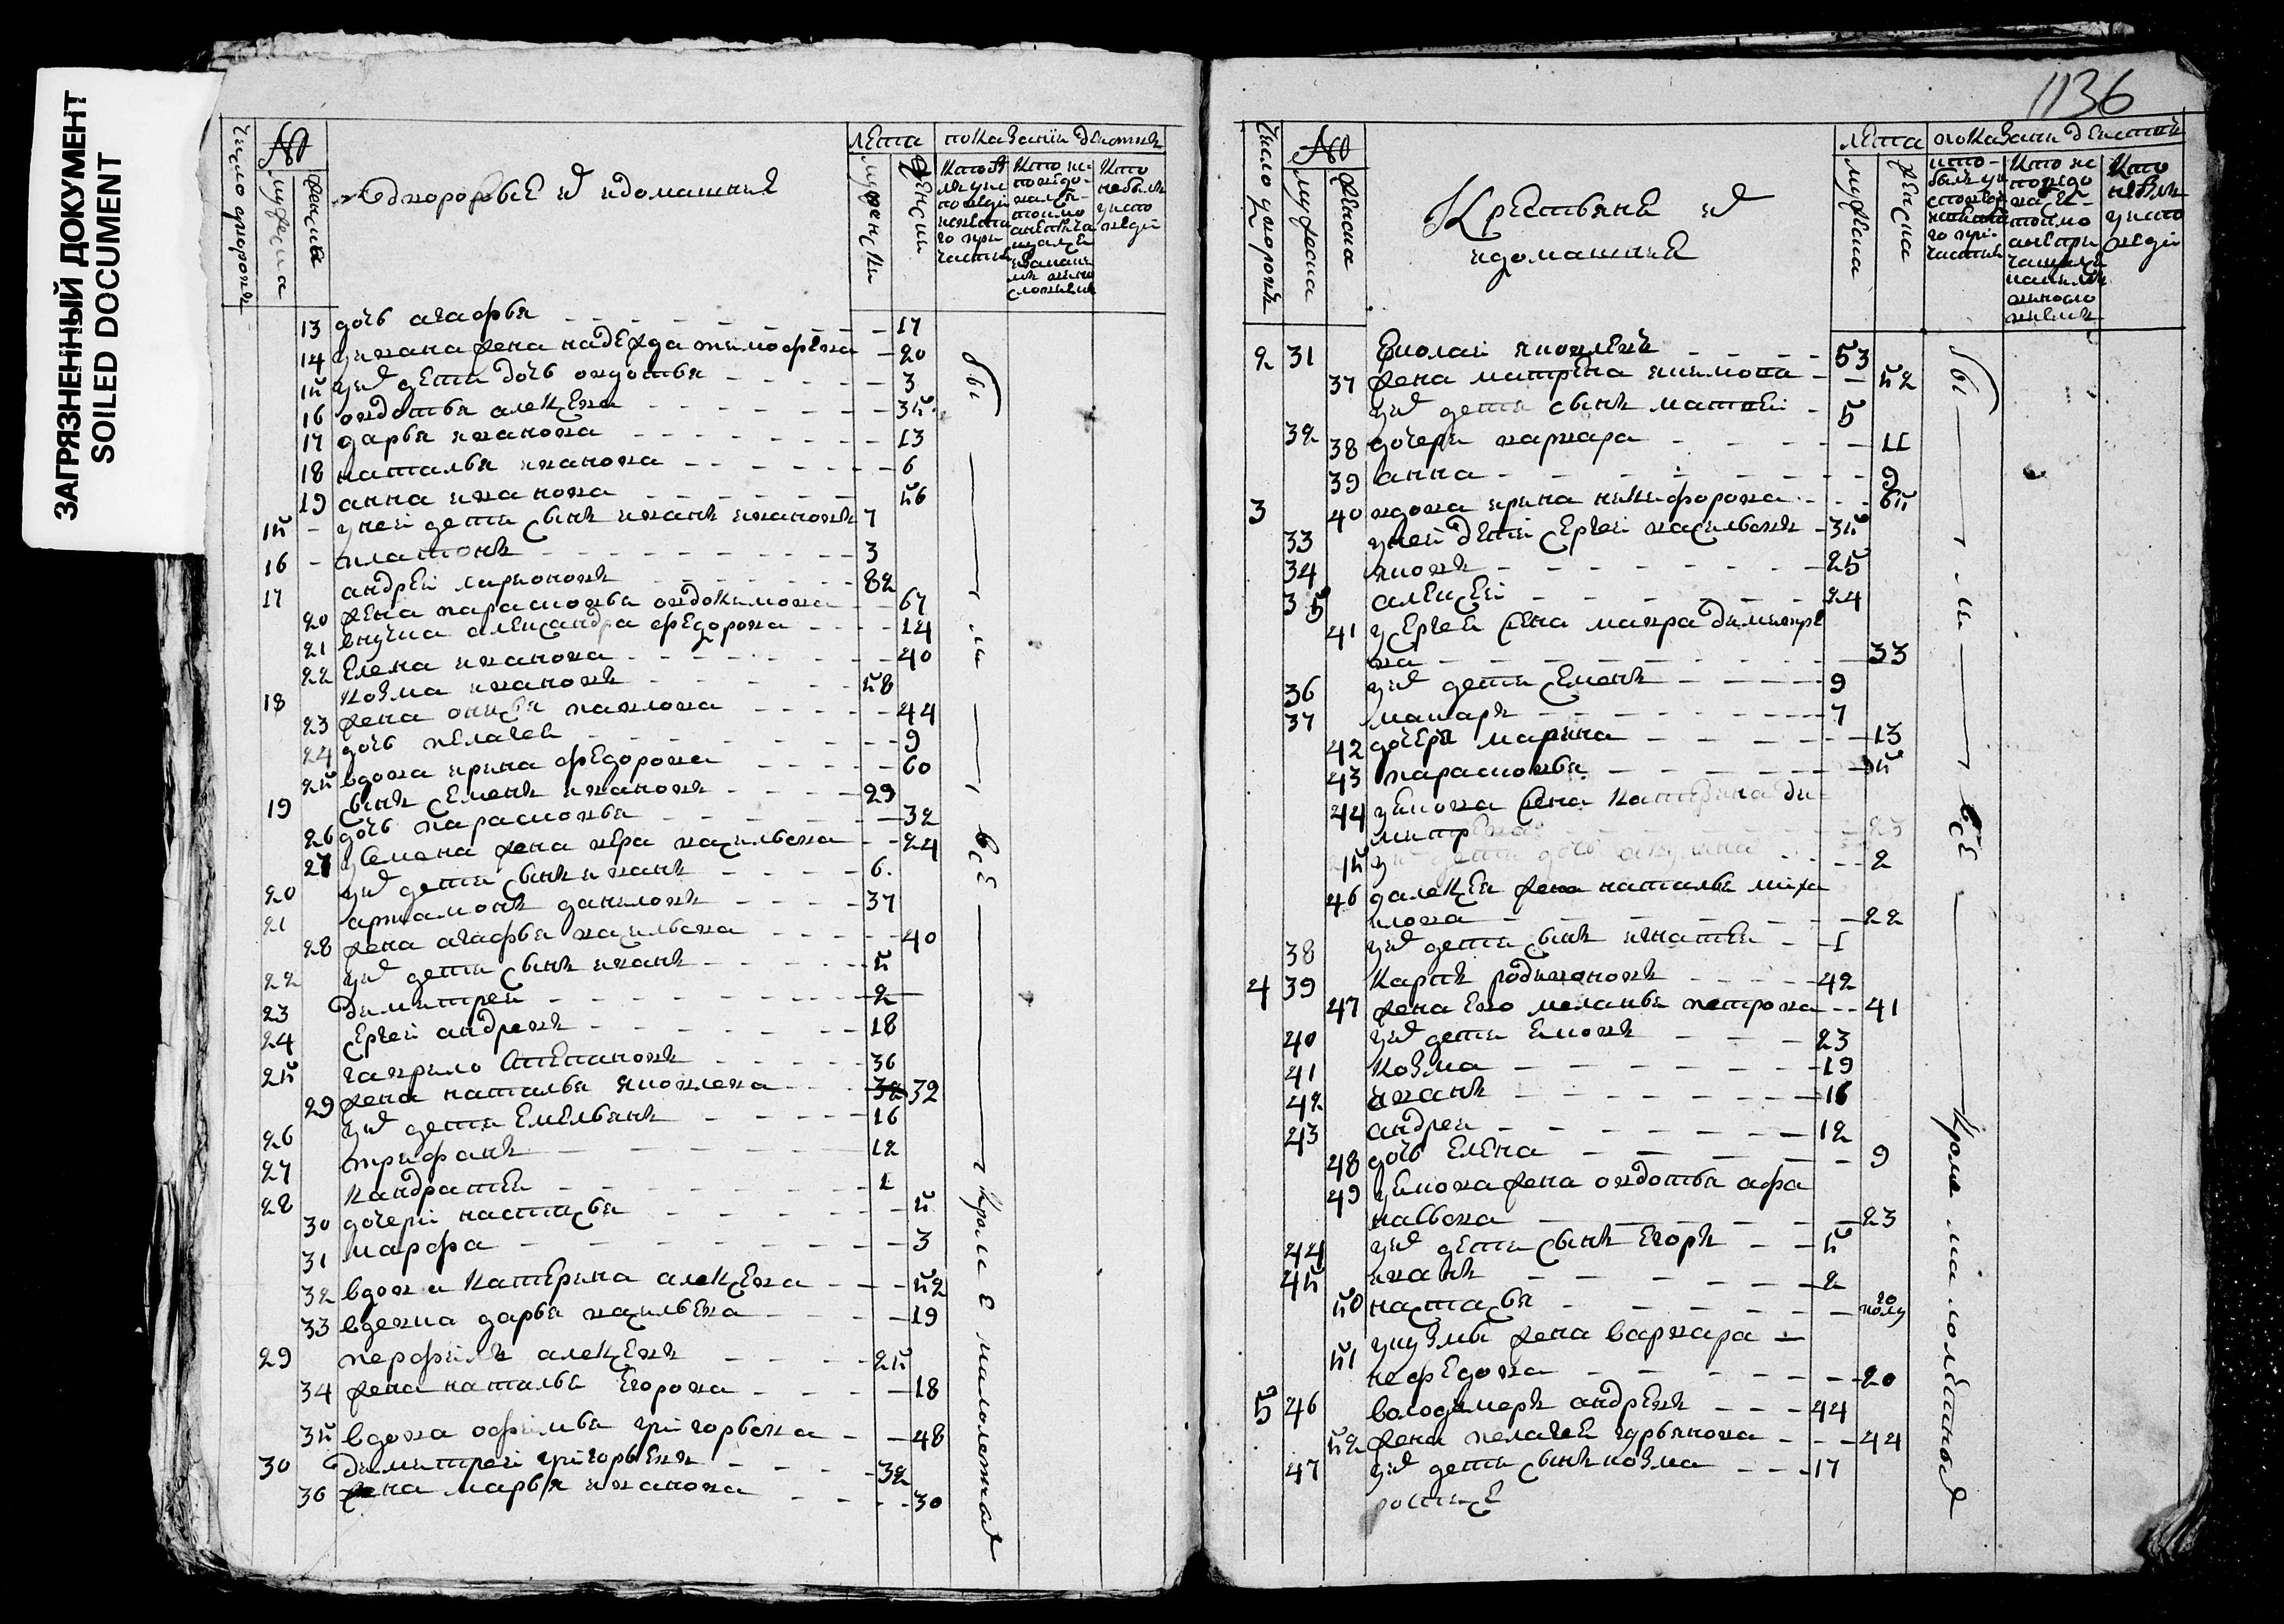 ЗАГРЯЗНЕННЫЙ ДОКУМЕНТ
SOILED DOCUMENT
число дворовъ
№
мужеска
женска
Однодворцы и домашния
лета
мужески
женски
показании действъ
Кто не былъ у исповеди
13 дочь агафья 17
14 уивана жена надежда тимофевна 20
15 уихъ дети дочь овдотья 3
16 овдотья алексевна 35
17 дарья иванова 13
18 наталья иванова 6
19 анна иванова 56
15 унеи дети сынъ иванъ ивановъ 7
16 платонъ 3
17 андреи ларионовъ 82
20 жена парасковья овдокимова 67
21 внучка александра федорова 14
22 елена иванова 40
18 козма ивановъ 58
23 жена павлова 44
24 дочь пелагея 9
25 вдова ирина федорова 60
19 сынъ семенъ ивановъ 29
26 дочь парасковья 32
27 усемена жена вера васильевна 24
20 уихъ дети сынъ иванъ 6
21 артамонъ даниловъ 37
28 жена агафья васильевна 40
22 уихъ дети сынъ иванъ 5
23 димитреи 2
24 сергеи андревъ 18
25 гаврило степановъ 36
29 жена наталья яковлева 32 32
26 уихъ дети емельянъ 16
27 трифанъ 12
28 кандратеи 1
30 дочери настасья 5
31 марфа 3
32 вдова катерина алексевна 52
33 вдовка дарья васильевна 19
29 перфилъ алексевъ 25
34 жена наталья егорова 18
35 вдова офимья григорьевна 48
30 димитреи григорьевъ 32
36 жена марья иванова 30
бы ли все кроме малолетныхъ
1136
число дворовъ
№
мужеска
женска
Крестьяне их
идомашния
лета
мужеска
женска
показании действъ
2 31 яковлевъ 53
37 жена матрена 52
32 уихъ дети сынъ матвеи 5
38 дочери варвара 11
39 анна 9
3 40 вдова ирина никифорова 65
33 унеи дети сергеи васильевъ 35
34 яковъ 25
35 алексеи 24
41 усергея жена мавра димитре
вна 33
36 уихъ дети семенъ 9
37 макаръ 7
42 дочери марина 13
43 парасковья 5
44 уякова жена катерина ди
митревна 23
45 у дети дочь 2
46 уалексея жена наталья миха
илова 22
38 уихъ дети сынъ игнатеи 1
4 39 карпъ родивоновъ 42
47 жена ево меланья петрова 41
40 уихъ дети 23
41 козма 19
42 иванъ 16
43 андреи 12
48 дочь елена 9
49 жена овдотья афа
насьевна 23
44 уихъ дети сынъ егоръ 5
45 иванъ 2
50 настасья полу го
51 укузмы жена варвара
нефедова 20
5 46 володимеръ андревъ 44
52 жена пелагея гурьянова 44
47 уихъ дети сынъ козма 17
бы ли все кроме малолетныхъ